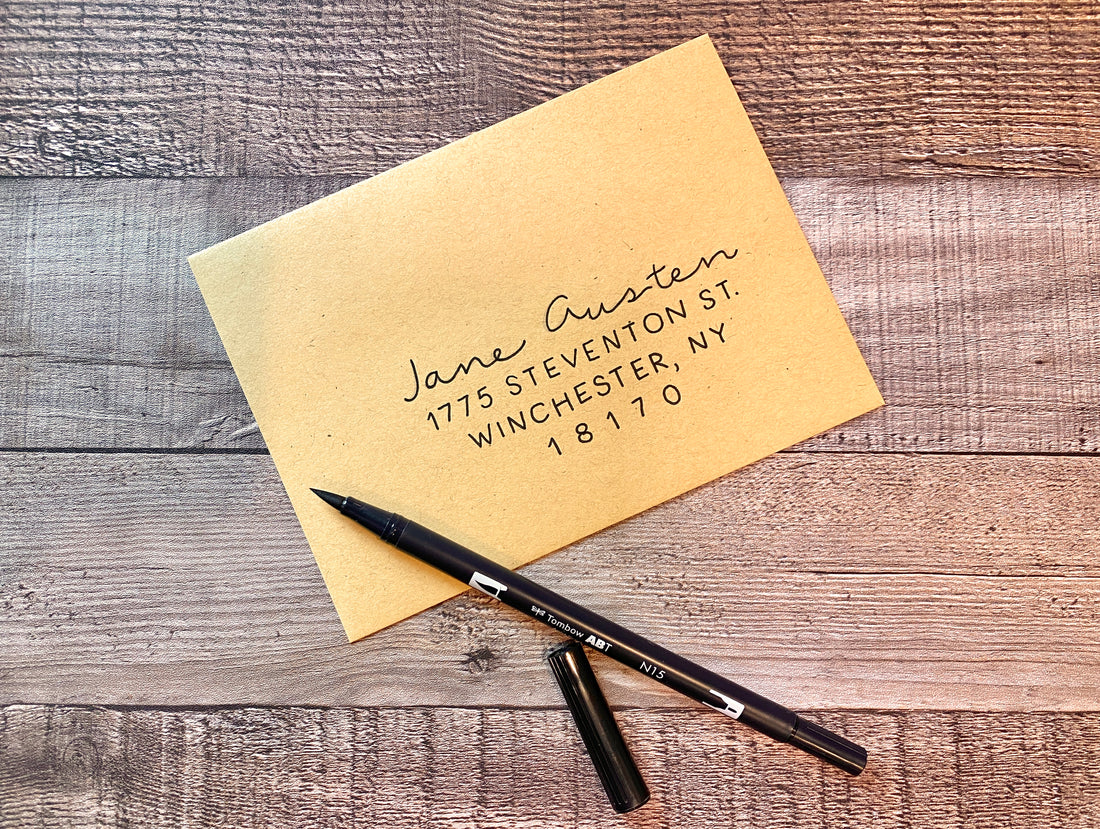 Jane Austen
1775 STEVENTON ST.
WINCHESTER, NY
18170
Tombow ABT N15